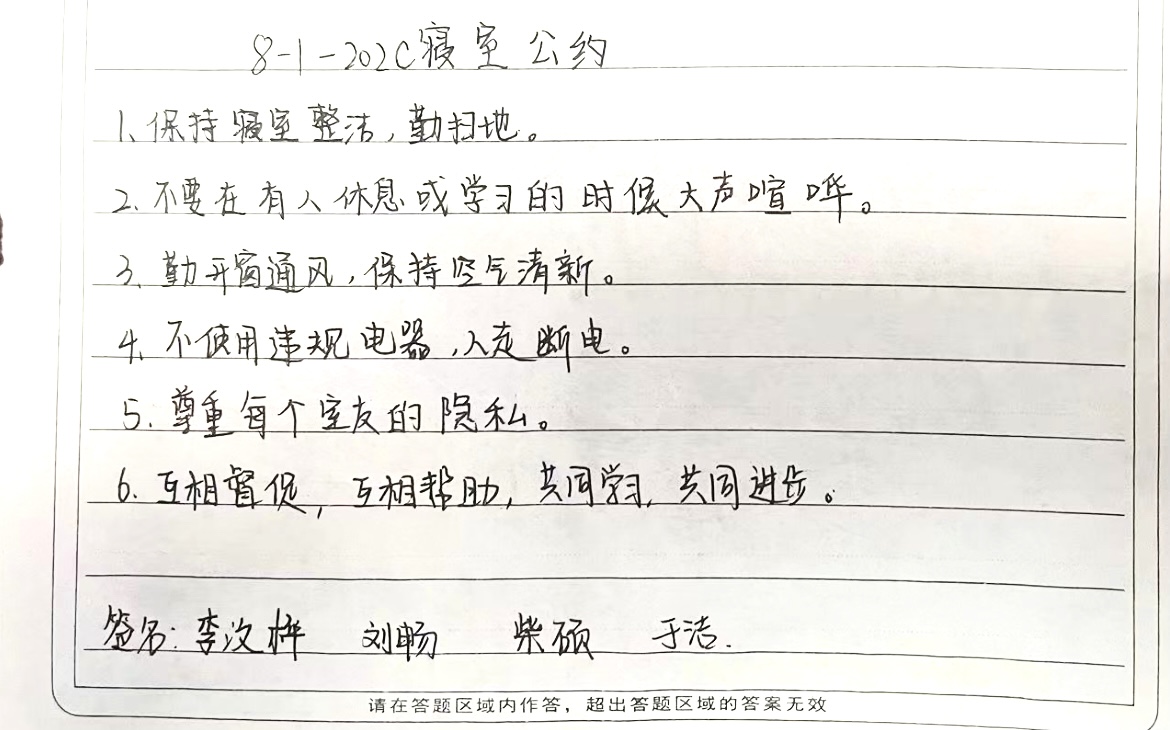 8-1-202C寝室公约
1、保持寝室整洁,勤扫地。
2.不要在有人休息或学习的时候大声喧哗。
3.勤开窗通风,保持空气清新。
4、不使用违规电器,人走断电。
5.尊重每个室友的隐私。
6.互相督促,互相帮助,共同学习,共同进步。
签名:李汶梓 刘畅 柴硕 于洁.
请在答题区域内作答,超出答题区域的答案无效